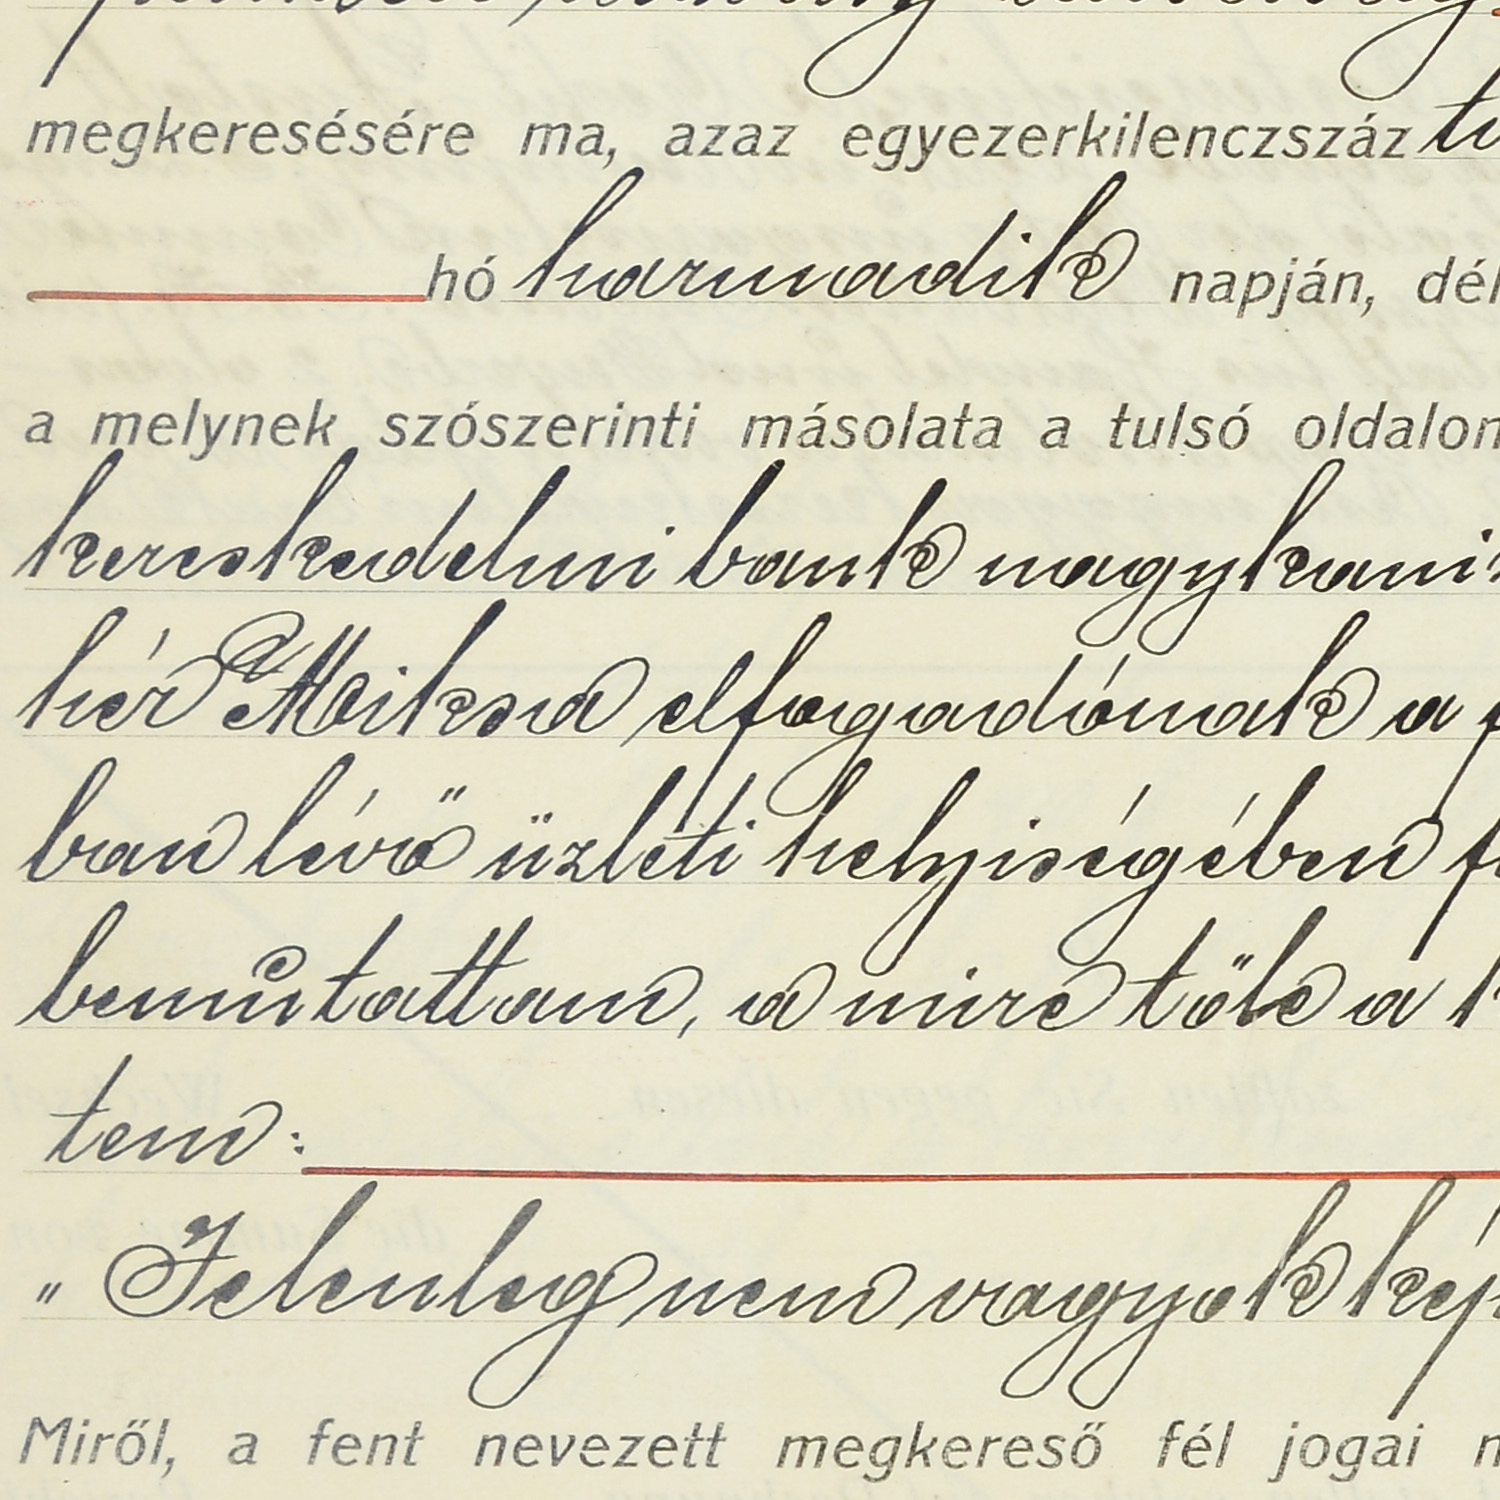 megkeresésére ma, azaz egyezerkilenczszáz
hó harmadik napján, dél
a melynek szószerinti másolata a tulsó oldalon
kereskedelmi bank nagykani
hér Miksa elfogadónak a
ban lévő üzleti helyiségében
bemutattam, a mire tőle a
tem:
"Jelenleg nem vagyok kép
Miről, a fent nevezett megkereső fél jogai